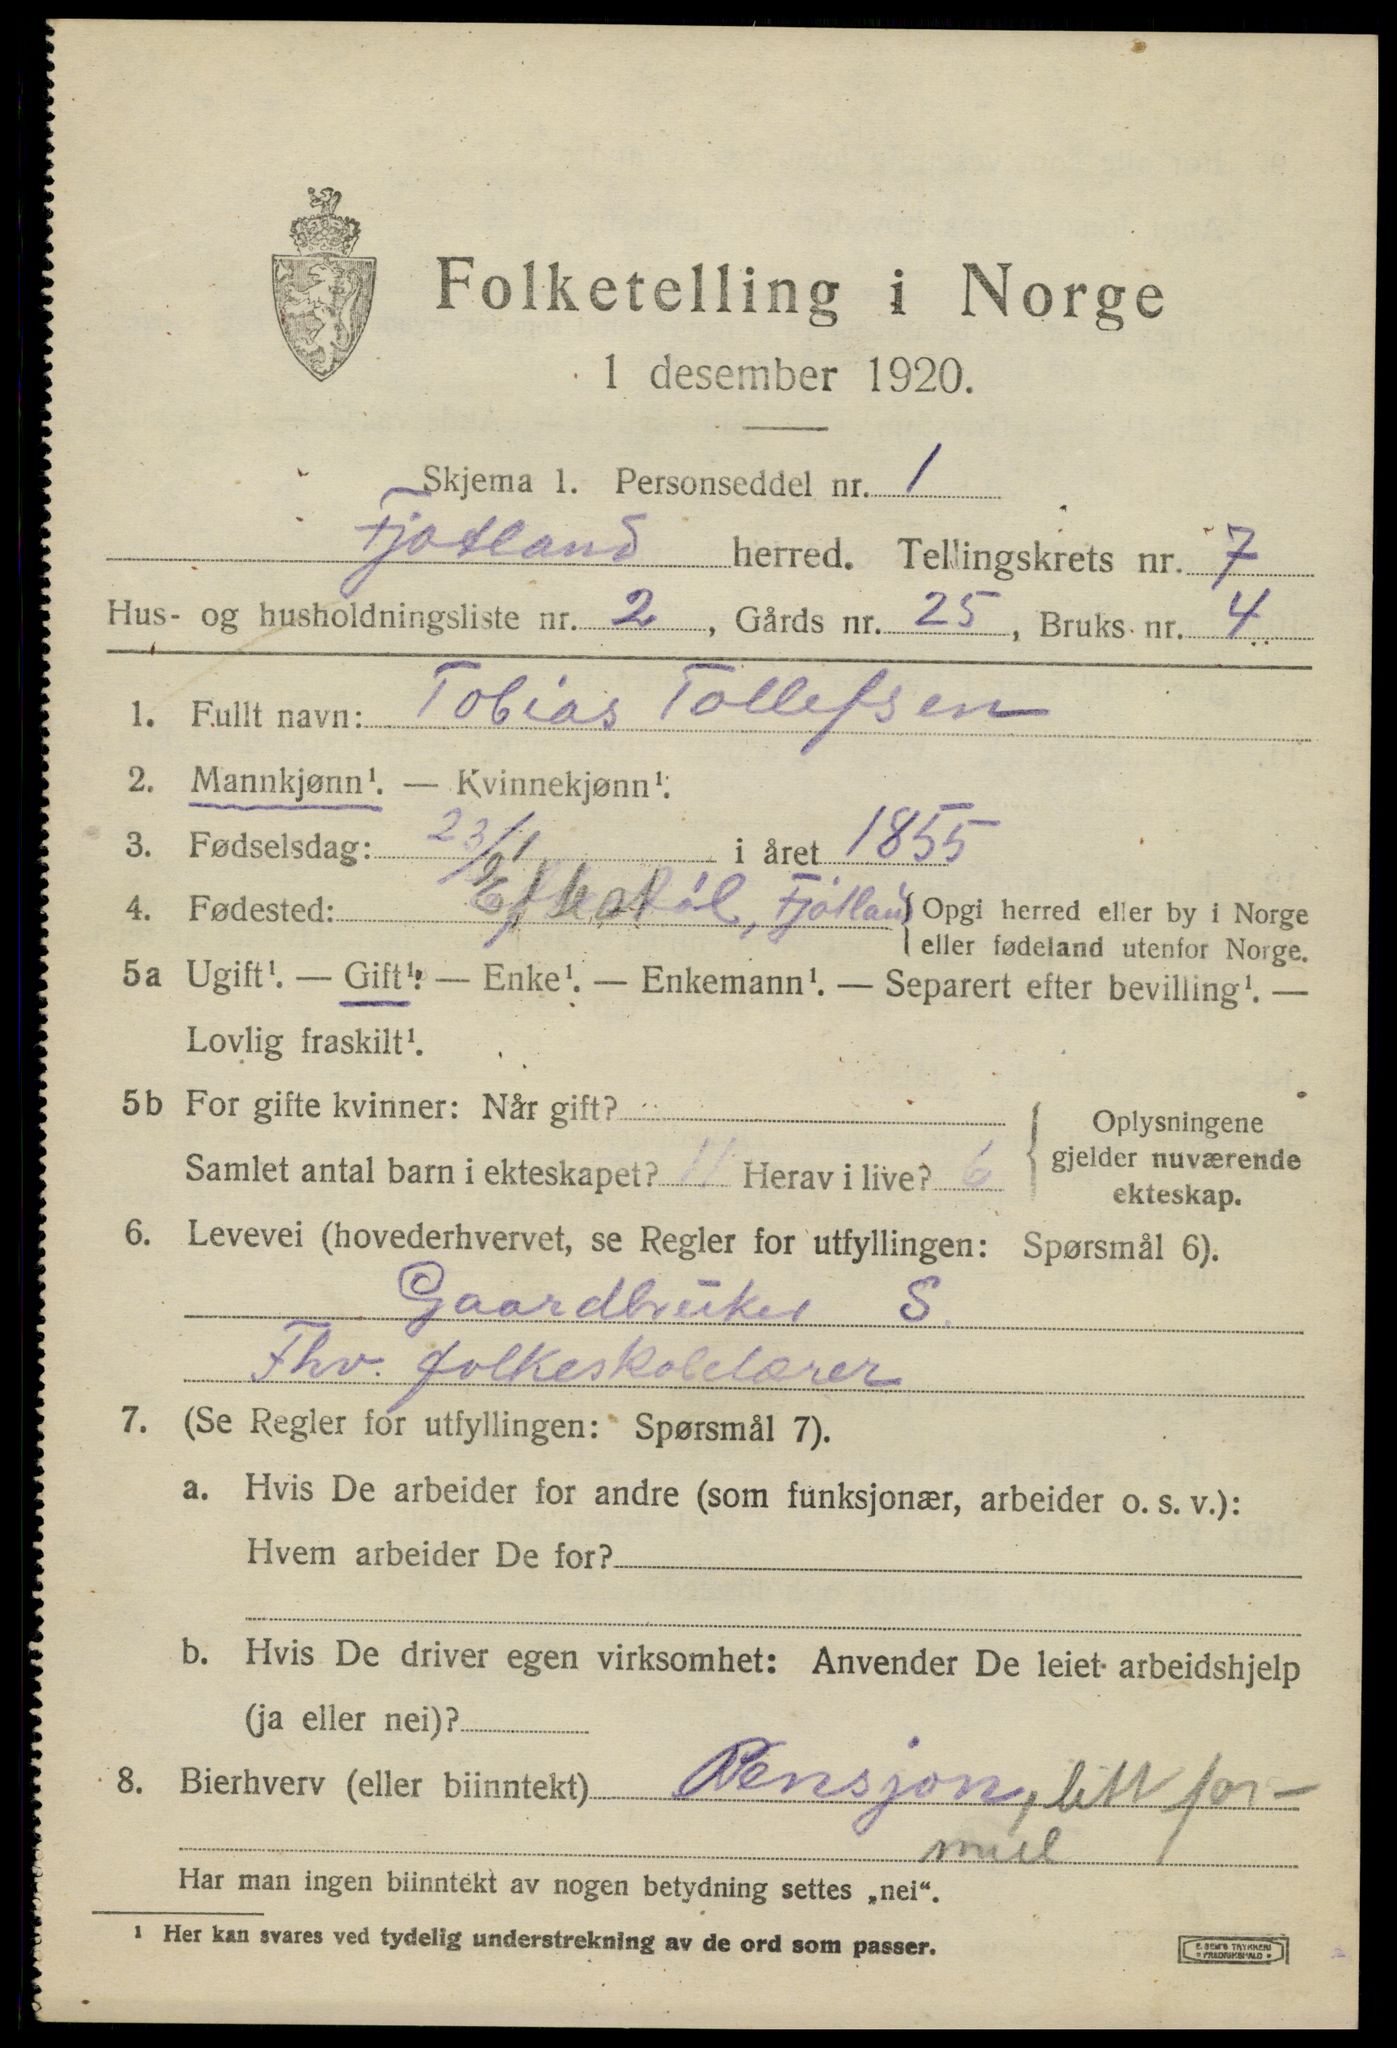 Folketelling i Norge
1 desember 1920.
Skjema 1. Personseddel nr. 1
Fjotland herred. Tellingskrets nr. 7
Hus- og husholdningsliste nr. 2, Gårds nr. 25, Bruks nr. 4
1. Fullt navn: Tobias Tollefsen
2. Mannkjønn¹. — Kvinnekjønn¹.
3. Fødselsdag: 23/1 i året 1855
4. Fødested: Fjotland { Opgi herred eller by i Norge
eller fødeland utenfor Norge.
5a Ugift¹. — Gift¹. — Enke¹. — Enkemann¹. — Separert efter bevilling¹. —
Lovlig fraskilt¹.
5b For gifte kvinner: Når gift?
Samlet antal barn i ekteskapet? 11 Herav i live? 6
{ Oplysningene
gjelder nuværende
ekteskap.
6. Levevei (hovederhvervet, se Regler for utfyllingen: Spørsmål 6).
Gaardbruker S.
Fhv. folkeskolelærer
7. (Se Regler for utfyllingen: Spørsmål 7).
a. Hvis De arbeider for andre (som funksjonær, arbeider o. s. v.):
Hvem arbeider De for?
b. Hvis De driver egen virksomhet: Anvender De leiet arbeidshjelp
(ja eller nei)?
8. Bierhverv (eller biinntekt) Pensjon, litt for-
mue
Har man ingen biinntekt av nogen betydning settes „nei“.
¹ Her kan svares ved tydelig understrekning av de ord som passer.
E. SEM'S TRYKKERI
FREDRIKSHALD